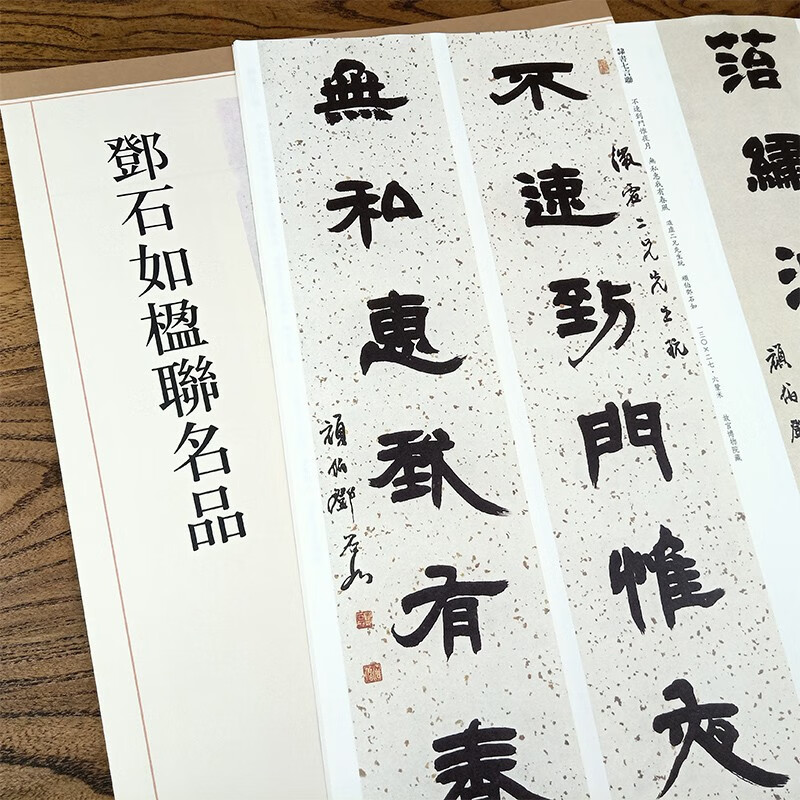 鄧石如楹聯名品
落繡
頑伯鄧
隸書七言聯
不速到門惟夜月 無私惠我有春風 二兄先生玩 頑伯鄧石如 一三〇×二七·六釐米 故宮博物院藏
不速到門惟夜
二兄先生玩
無私惠我有春
頑伯鄧石如